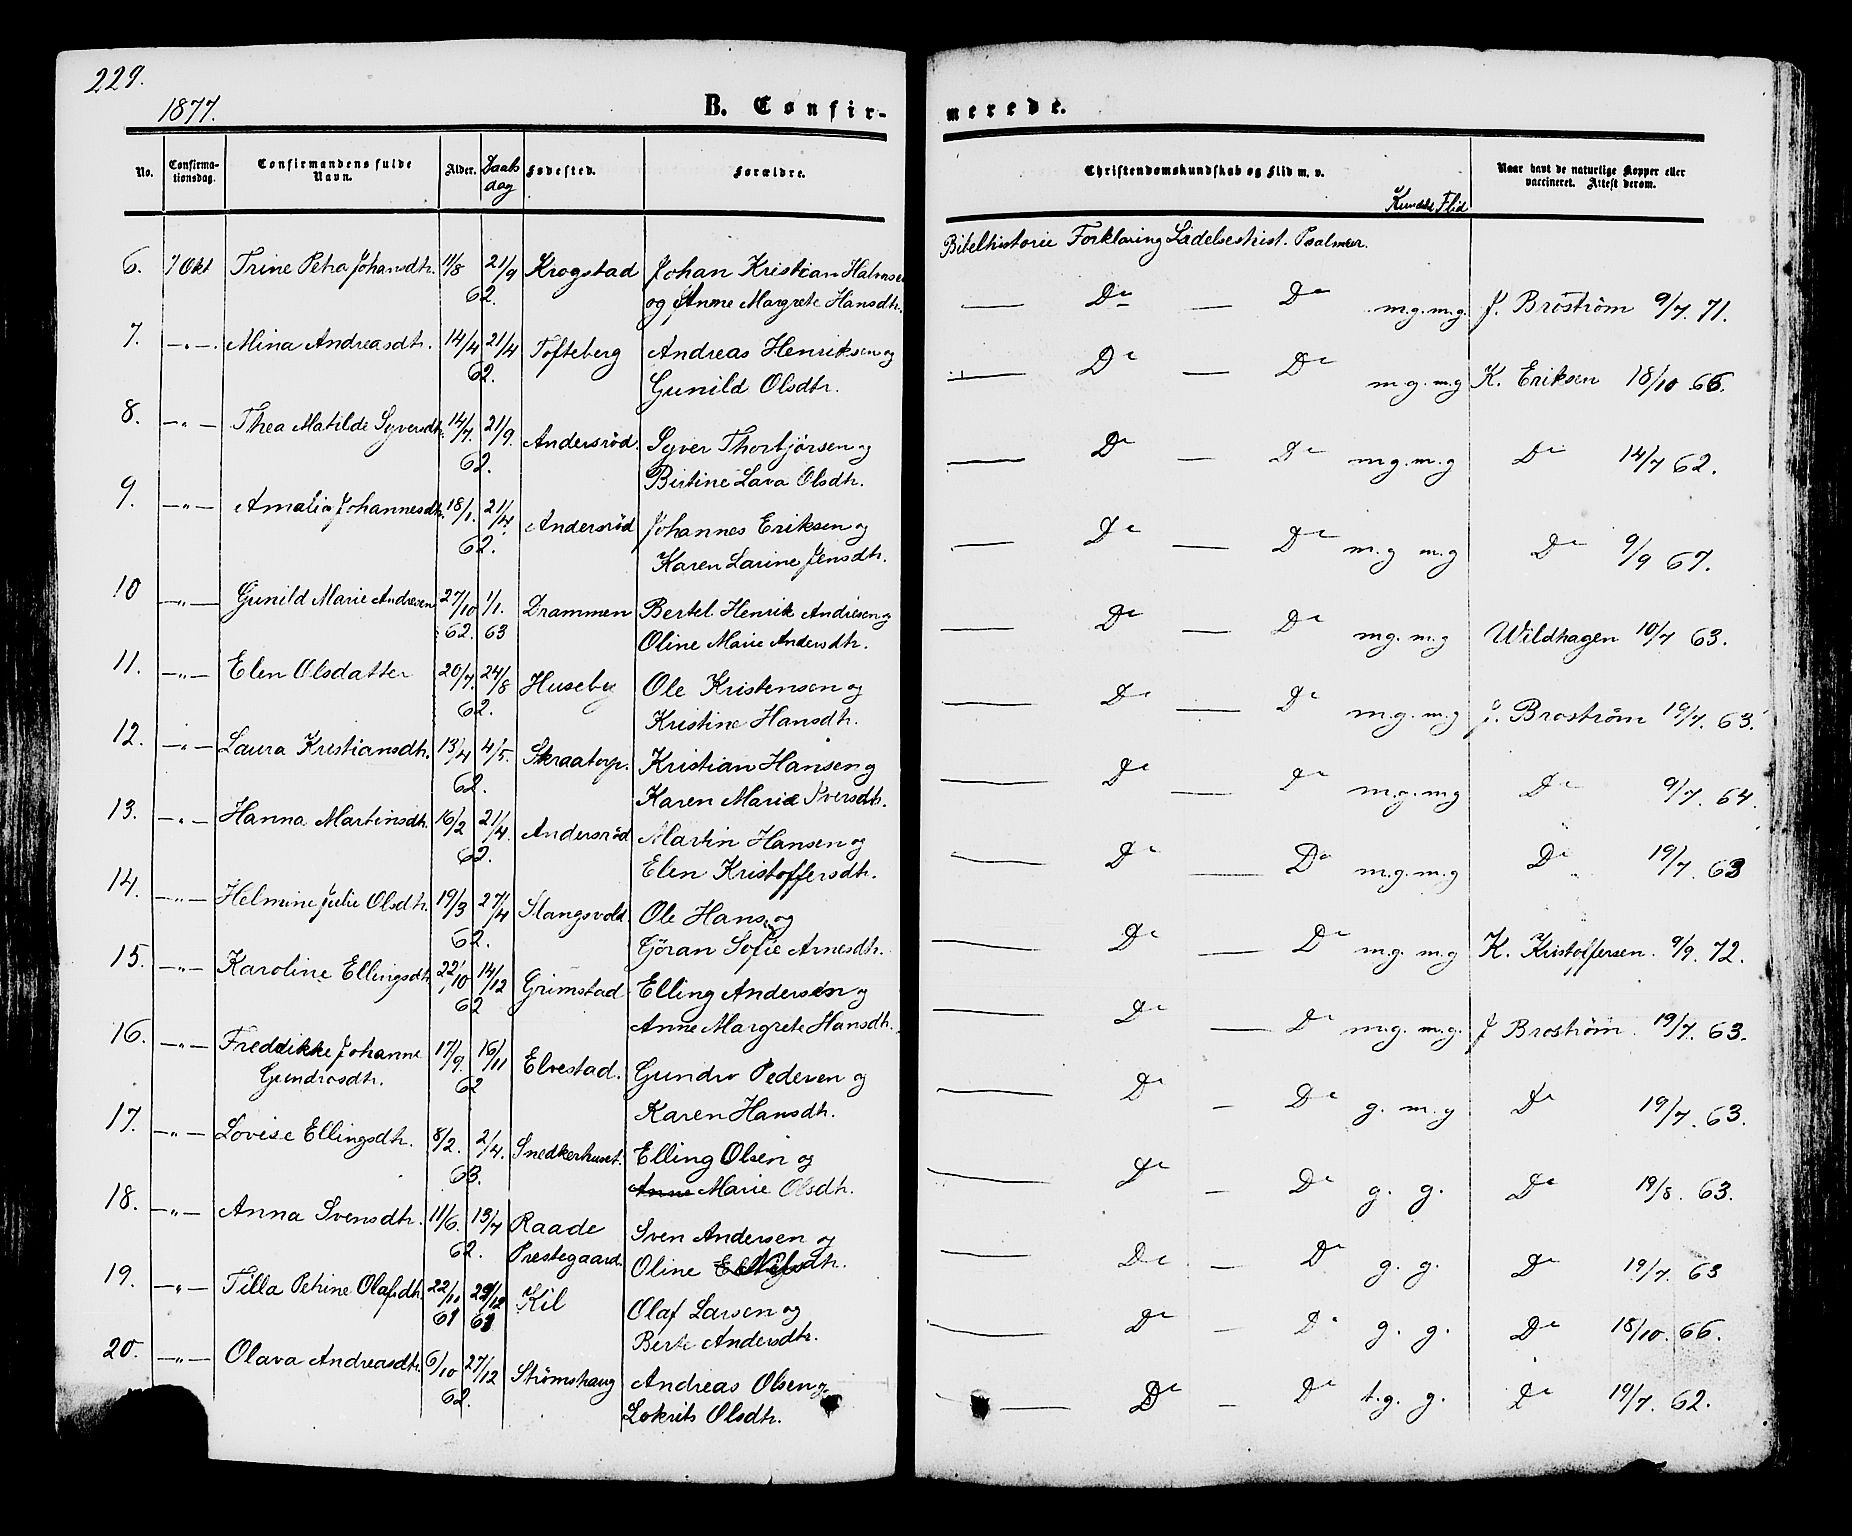 229.
1877.
B. Confirmerede.
No. Confirmationsdag. Confirmandens fulde Navn. Alder. Daabsdag Fødested. Forældre. Christendomskundskab og Flid m. v. Kundsk Flid Naar havt de naturlige Kopper eller vaccineret. Attest derom.
Bibelhistorie Forklaring Lidelseshist. Psalmer.
6. 7 Okt Trine Petra Johansdtr. 11/8 21/9 Krogstad Johan Kristian
62. og Anne Margrete Hansdtr.
— Do — Do m.g. m.g. J. Broström 9/7. 71.
7. —"— Mina Andreasdtr. 14/4 21/4 Tofteberg Andreas Henriksen og
62. Gunild Olsdtr.
— Do — Do m.g. m.g K. Eriksen 18/10 66.
8. —"— Thea Matilde Syversdtr. 14/7. 21/9. Andersrød. Syver Thorbjørsen og
62. Bertine Lava Olsdtr.
— Do — Do m.g. m.g Do 14/7 62.
9. —"— Amalia Johannesdtr. 18/1. 21/4. Andersrød Johannes Eriksen og
62. Karen Larine Jensdtr.
— Do — Do m.g m.g Do 9/9 67.
10 —"— Gunild Marie Andresen 27/10 1/1. Drammen Bertel Henrik Andresen og
62. 63 Oline Marie Andersdtr.
— Do — Do m.g. m.g Wildhagen 10/7 63.
11. —"— Elen Olsdatter 20/7. 24/8 Huseby Ole Kristensen og
62. Kristine Hansdtr.
— Do — Do m.g. m.g J. Broström 19/7. 63.
12. —"— Laura Kristiansdtr. 13/4 4/5. Skraatorp. Kristian Hansen og
62. Karen Marie Iversdtr.
— Do — Do m.g. m.g Do 9/7. 64.
13. —"— Hanna Martinsdtr. 16/2 21/4. Andersrød Martin Hansen og
62. Elen Kristoffersdtr.
— Do — Do m.g. m.g Do 19/7. 63
14. —"— Helmine Julie Olsdtr. 19/3 27/4 Slangsvold Ole Hans. og
62. Gjöran Sofie Arnesdtr.
— Do — Do m.g. m.g K. Kristoffersen. 9/9. 72.
15. —"— Karoline Ellingsdtr 22/10 14/12 Grimstad Elling Andersen og
62 Anne Margrete Hansdtr.
— Do — Do m.g. m.g. J Broström. 19/7. 63.
16. —"— Freddikke Johanne 17/9. 16/11 Elvestad. Gundro Pedersen og
Gundrosdtr. 62 Karen Hansdtr.
— Do — Do g. m.g Do 19/7. 63.
17. —"— Lovise Ellingsdtr. 8/2. 2/4. Snedkerhuset. Elling Olsen og
63. Anne Marie Olsdtr.
— Do — Do g. g. Do 19/8. 63.
18. —"— Anna Svensdtr. 11/6. 13/7 Raade Sven Andersen og
62. Prestegaard. Oline
— Do — Do g. g. Do 19/7. 63
19. —"— Tilla Petrine Olafsdtr. 22/11 29/12 Kil Olaf Larsen og
61 61 Berte Andersdtr.
— Do — Do g. g. Do 18/10. 66.
20. —"— Olava Andreasdtr. 6/10 27/12 Strömshaug Andreas Olsen og
62. Lokrits Olsdtr.
— Do — Do t.g. g. Do 19/7. 62.